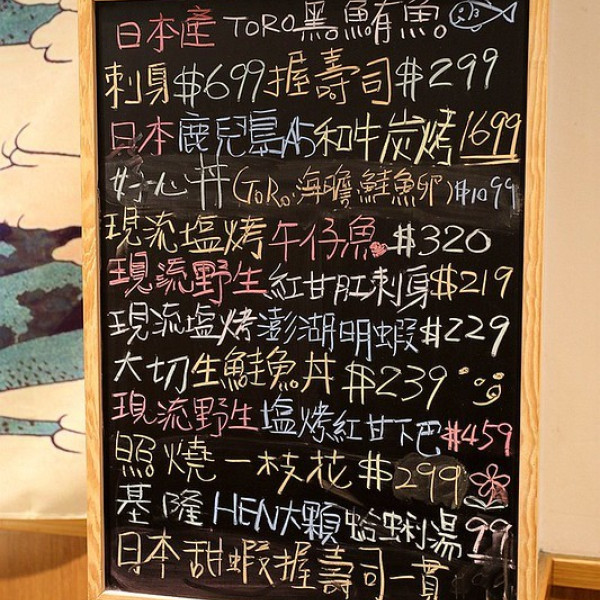 日本產 TORO黑鮪魚
刺身$699握壽司$299
日本鹿兒島A5和牛炭烤1699
好心丼(TORO.海膽.鮭魚卵)$1099
現流塩烤午仔魚$320
現流野生紅甘肚刺身$219
現流塩烤澎湖明蝦$229
大切生鮭魚丼$239
現流野生塩烤紅甘下巴$459
照燒一枝花$299
基隆HEN大顆蛤蜊湯99
日本甜蝦握壽司一貫